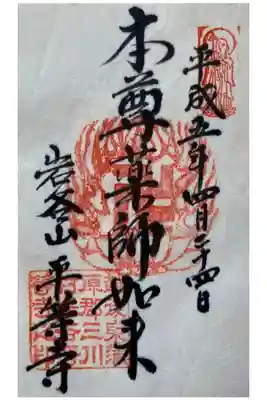 平成五年四月二十四日
本尊薬師如来
岩谷山 平等寺
原郡三川